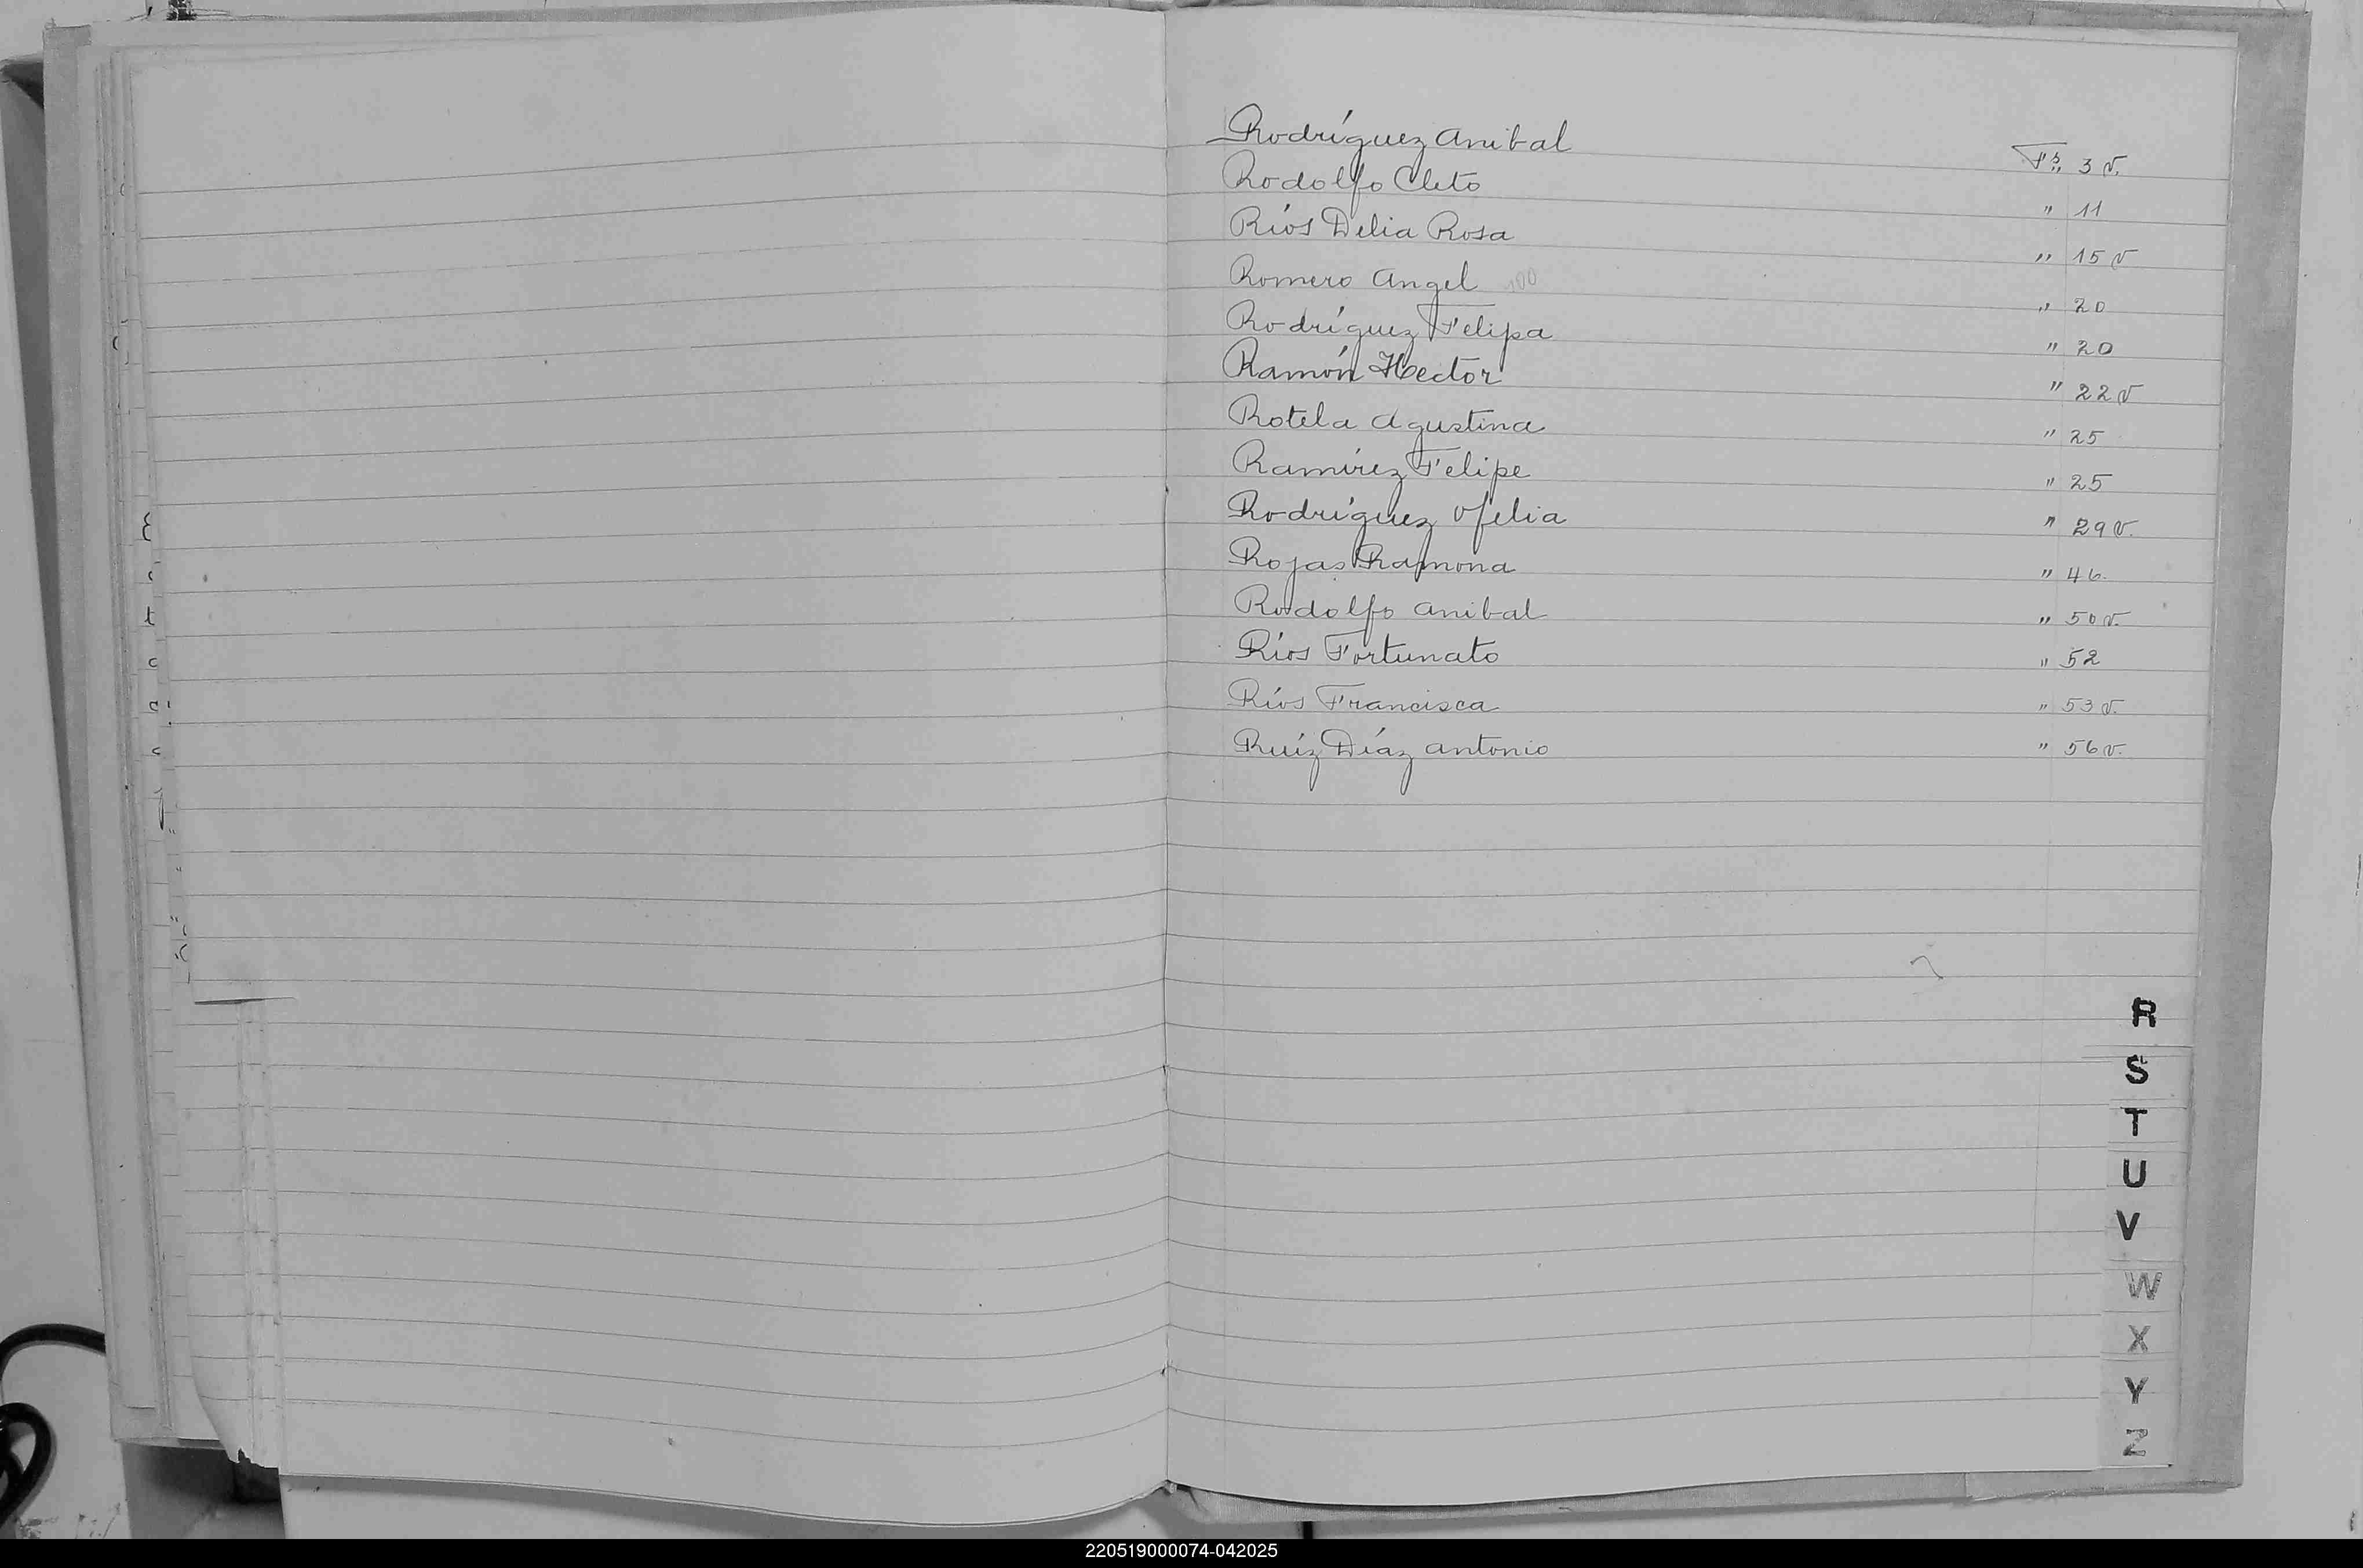 Rodríguez Anibal Fs. 3 v.
Rodolfo Cleto " 11
Ríos Delia Rosa " 15 v
Romero Angel 100 " 20
Rodríguez Felipa " 20
Ramón Hector " 22 v
Rotela Agustina " 25
Ramírez Felipe " 25
Rodríguez Ofelia " 29 v.
Rojas Ramona " 46.
Rodolfo Anibal " 50 v.
Ríos Fortunato " 52
Ríos Francisca " 53 v.
Ruíz Díaz Antonio " 56 v.
R
S
T
U
V
W
X
Y
Z
220519000074-042025